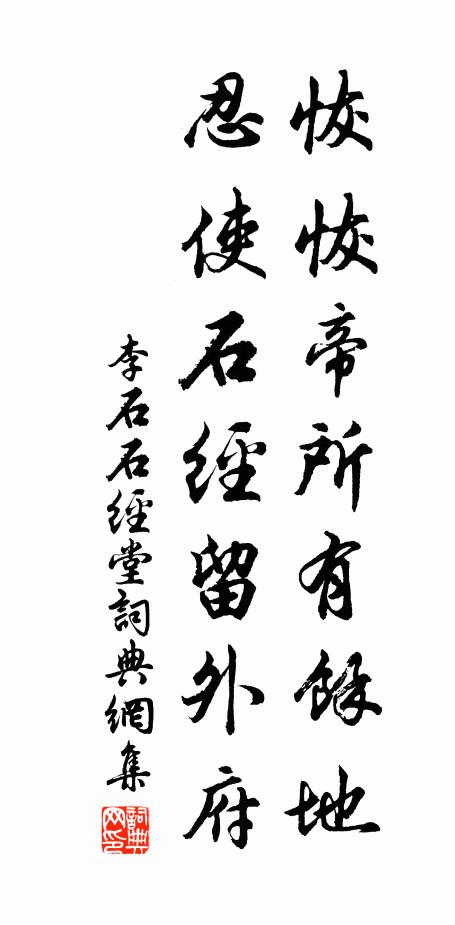 恢恢帝所有餘地
忍使石經留外府
李石石經堂詞典網集
詞典网印